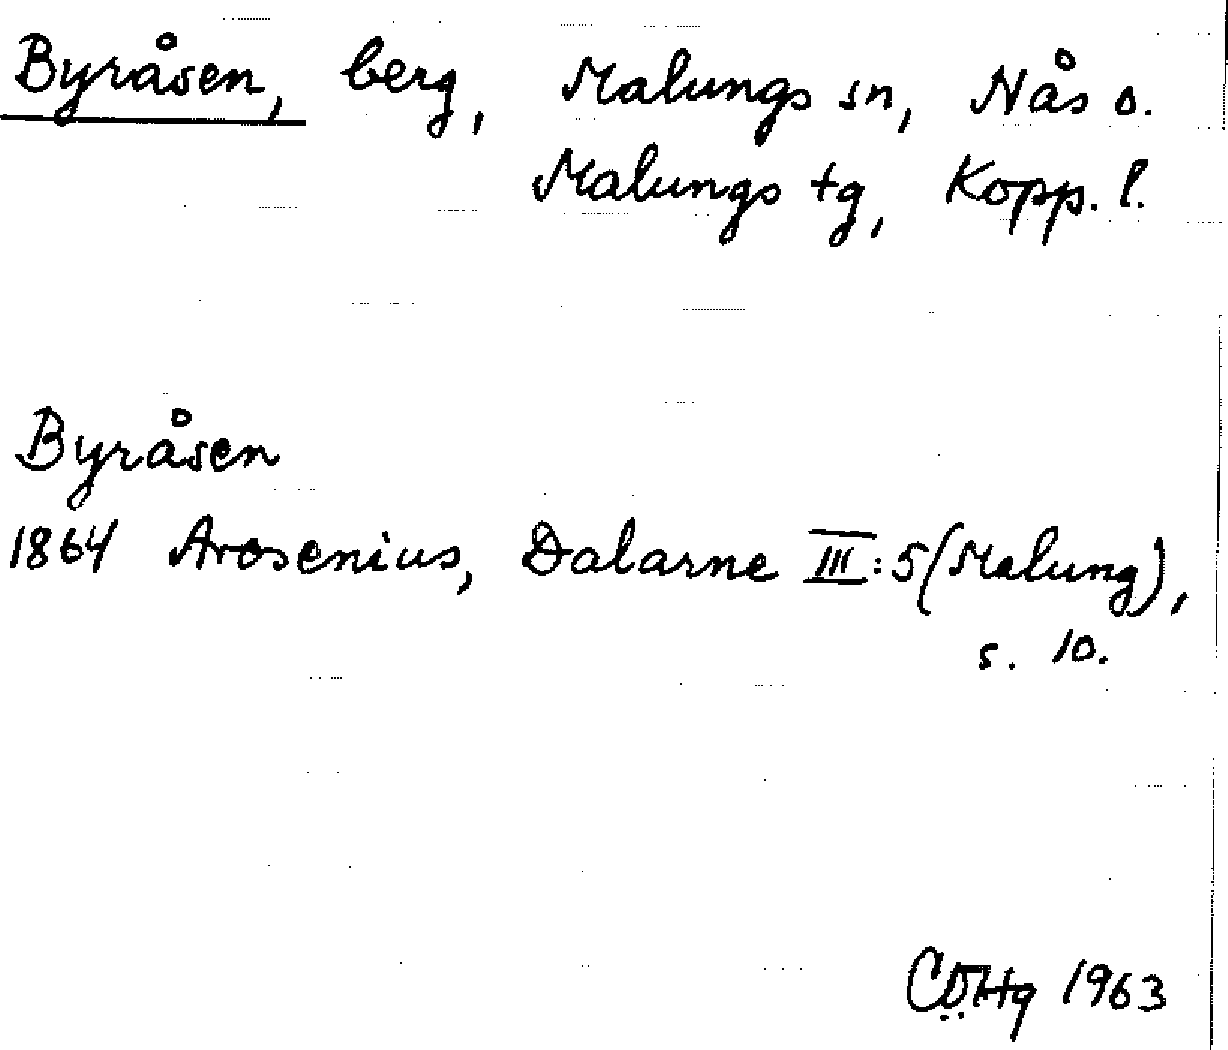 Byråsen, berg, Malungs sn, Nås o.
Malungs tg, Kopp. l.
Byråsen
1864 Arosenius, Dalarne III:5 (Malung),
s. 10.
CÖHg 1963